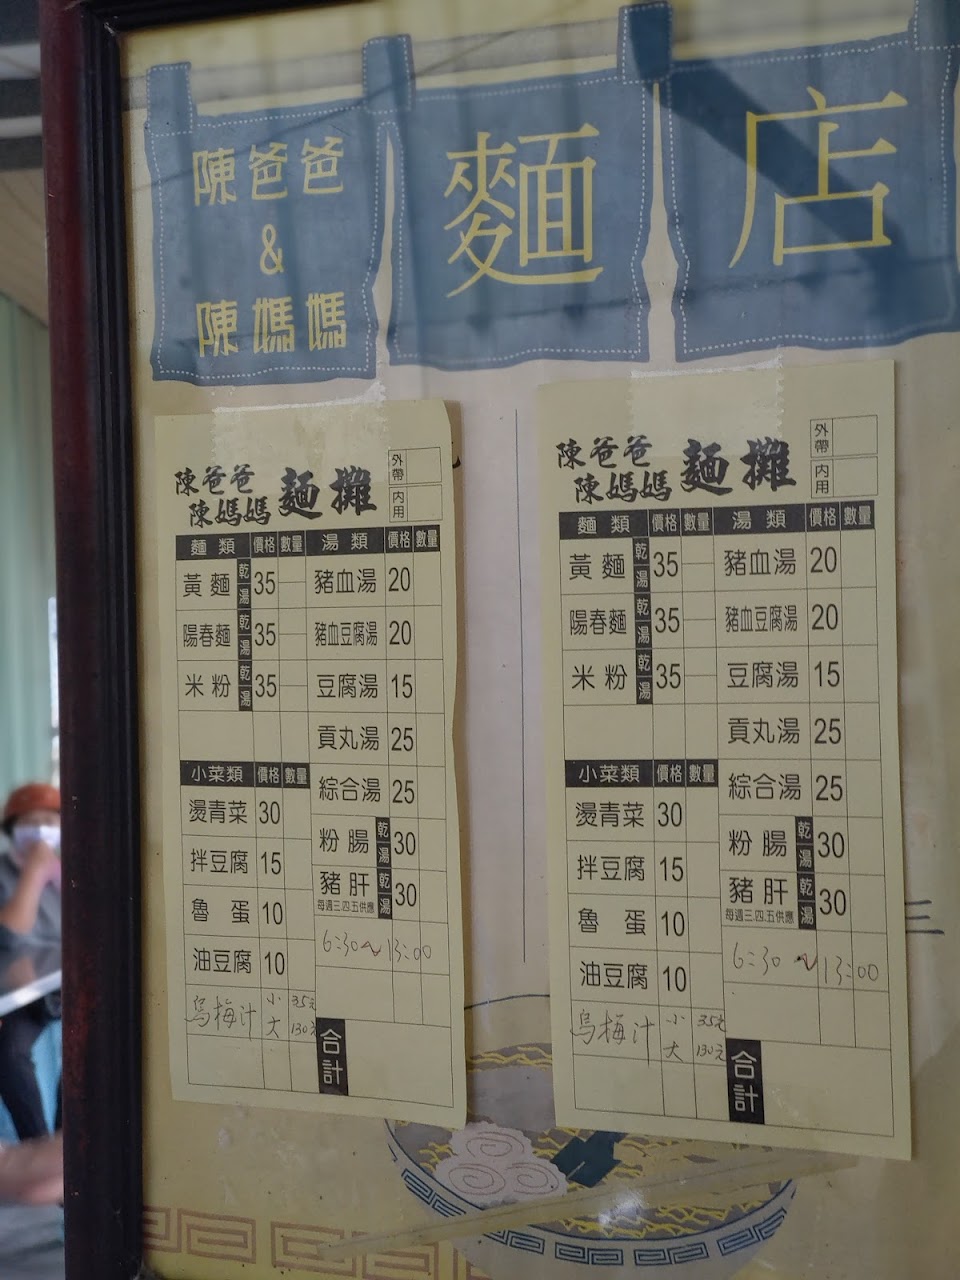 陳爸爸
&
陳媽媽
麵
店
陳爸爸
陳媽媽
麵攤
外帶
內用
麵類 價格 數量 湯類 價格 數量
黃麵 乾 湯 35 豬血湯 20
陽春麵 乾 湯 35 豬血豆腐湯 20
米粉 乾 湯 35 豆腐湯 15
貢丸湯 25
小菜類 價格 數量 綜合湯 25
燙青菜 30 粉腸 乾 湯 30
拌豆腐 15 豬肝 乾 湯 30
每週三.四.五供應
魯蛋 10 6:30~13:00
油豆腐 10
烏梅汁 小 35元
大 130元
合計
陳爸爸
陳媽媽
麵攤
外帶
內用
麵類 價格 數量 湯類 價格 數量
黃麵 乾 湯 35 豬血湯 20
陽春麵 乾 湯 35 豬血豆腐湯 20
米粉 乾 湯 35 豆腐湯 15
貢丸湯 25
小菜類 價格 數量 綜合湯 25
燙青菜 30 粉腸 乾 湯 30
拌豆腐 15 豬肝 乾 湯 30
每週三.四.五供應
魯蛋 10 6:30~13:00
油豆腐 10
烏梅汁 小 35元
大 130元
合計